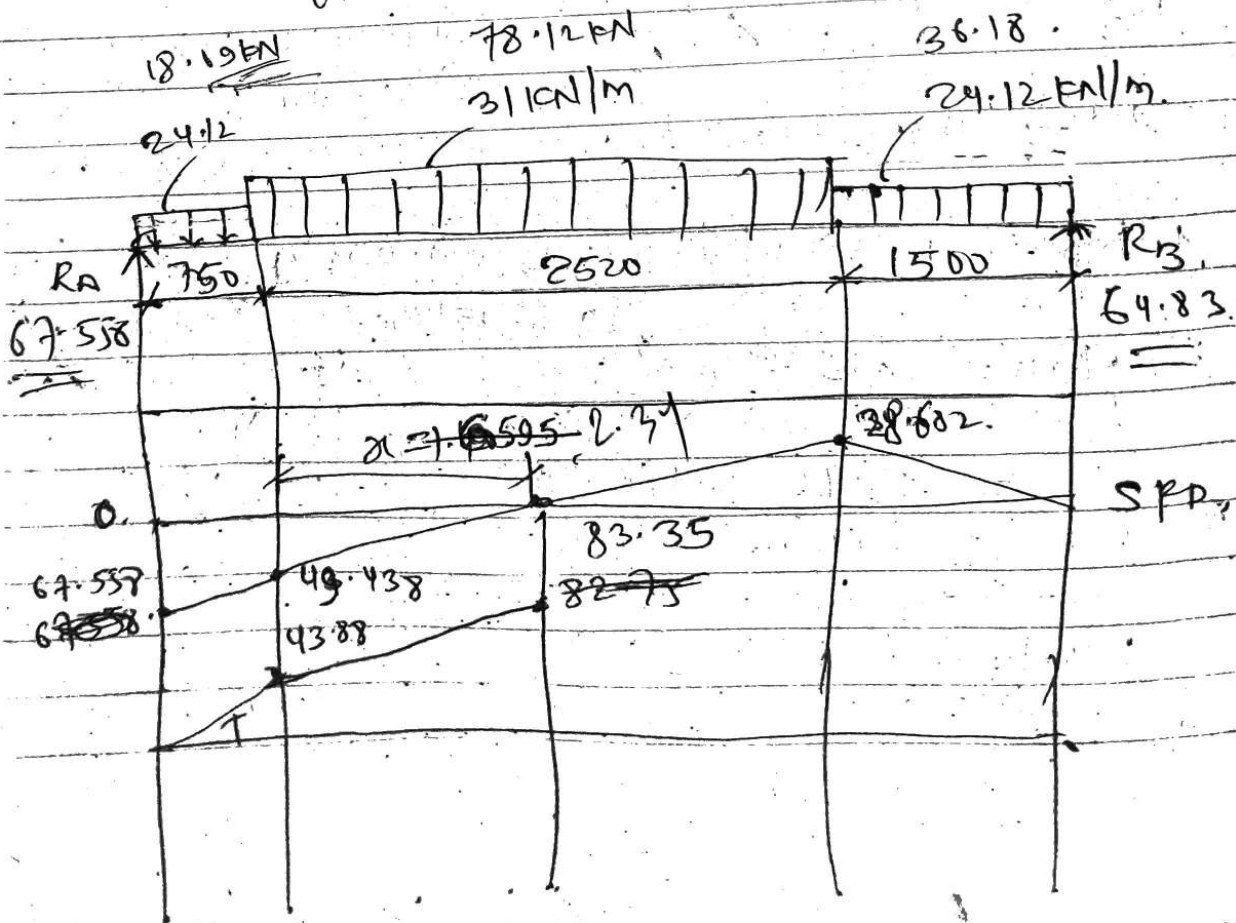 18.19 KN 78.12 KN 36.18.
24.12 31 KN/m 24.12 KN/m.
RA 750 2520 1500 RB,
67.558 64.83.
x = 2.34 28.682.
0. SFD,
83.35
67.558 49.438 82.75
43.88